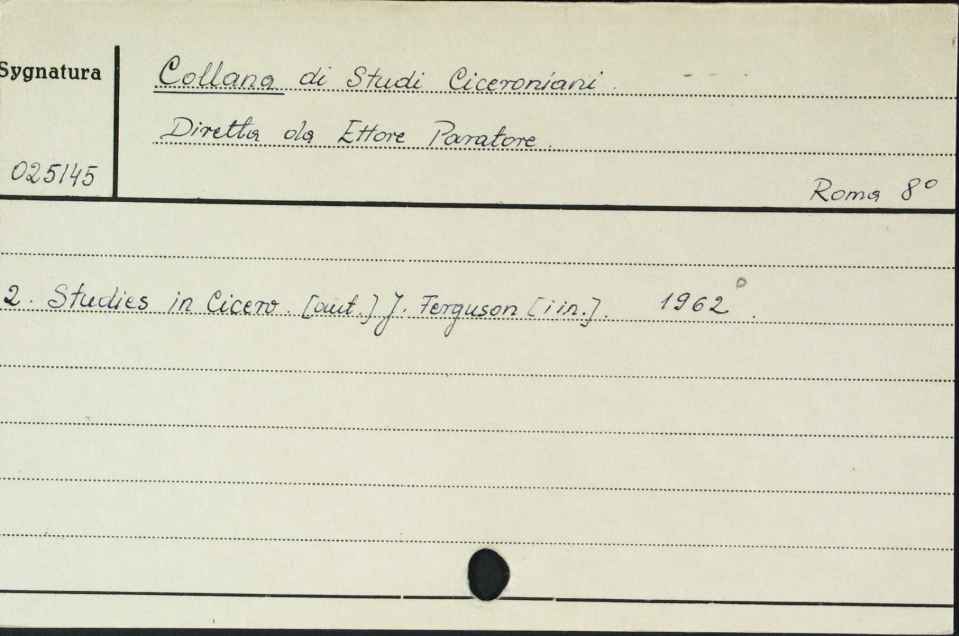 Sygnatura
Collana di Studi Ciceroniani.
Diretta da Ettore Paratore.
025145
Roma 8°
2. Studies in Cicero. [aut.] J. Ferguson [i in.]. 1962°.